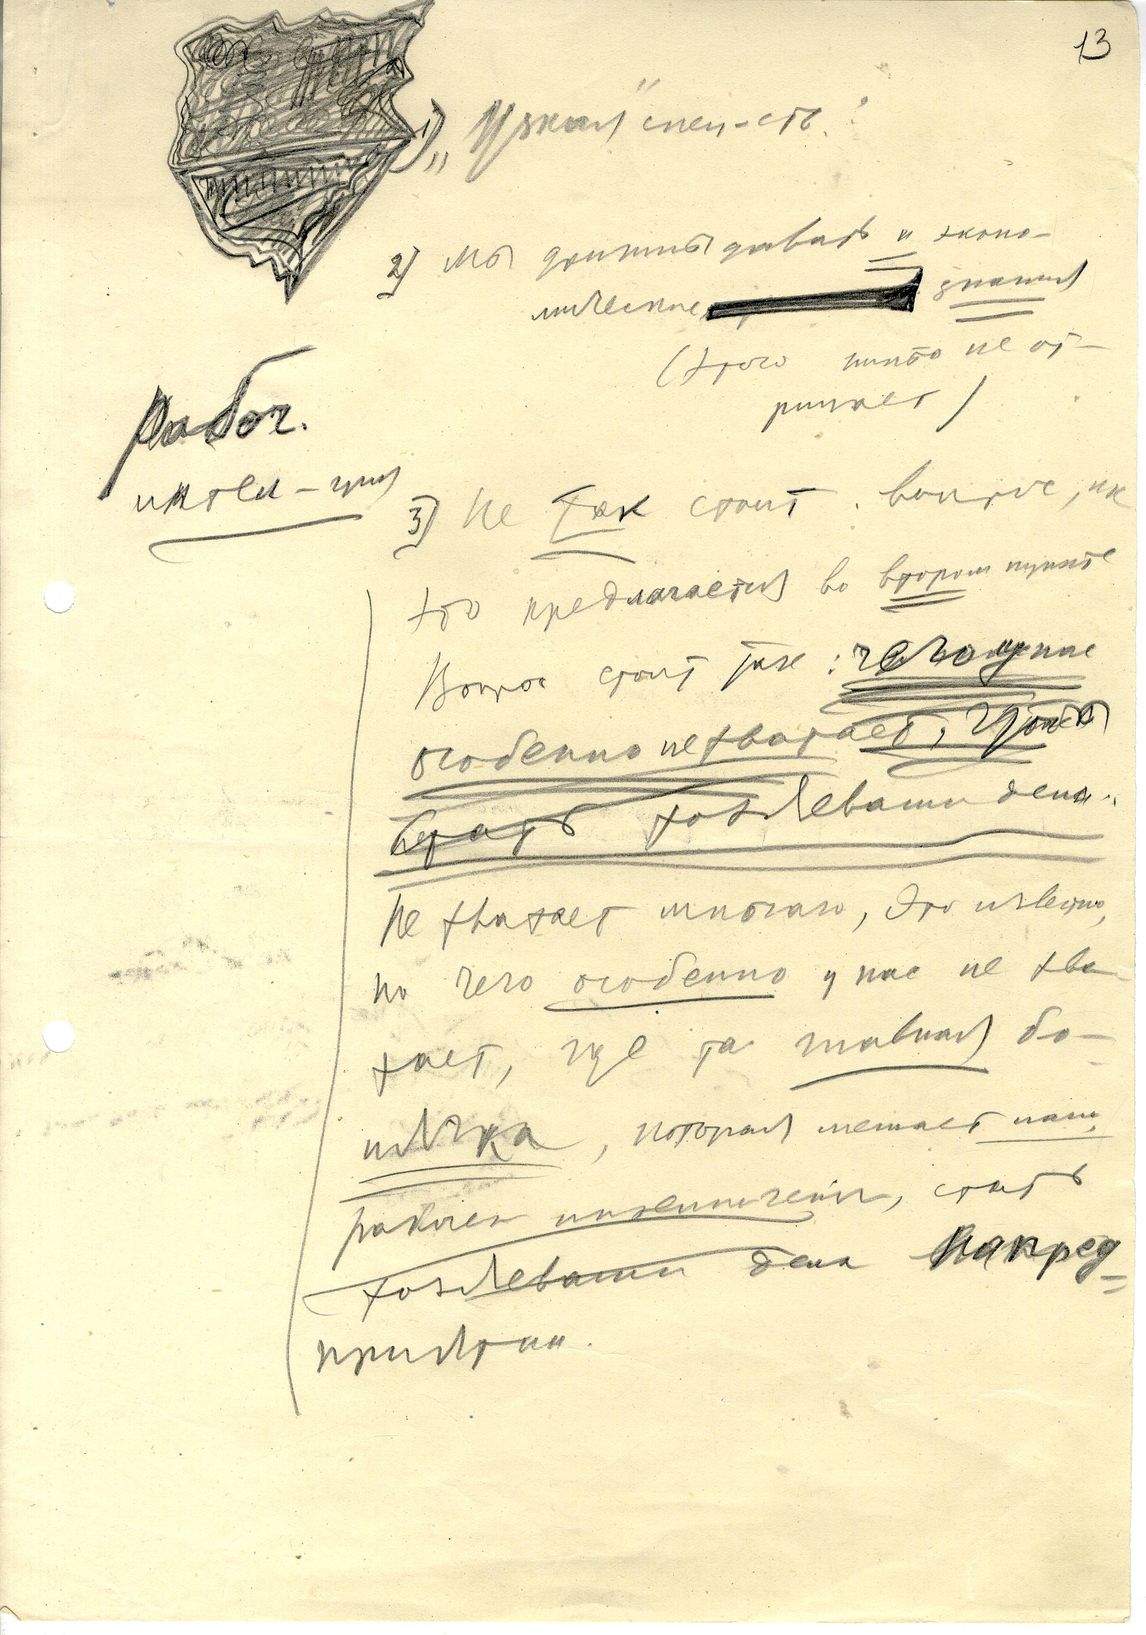 13
1) „Узкая" спец-сть.
2) Мы должны давать и эконо-
мические знания
(этого никто не от-
рицает)
Рабоч.
интел-ция
3) Не так стоит вопрос, как
это предлагается во втором пункте
Вопрос стоит так: чего у нас
особенно не хватает, чтобы
стать хозяевами дела.
Не хватает многого, это известно,
но чего особенно у нас не хва-
тает, где та главная бо-
лячка, которая мешает наш.
рабочей интеллигенции, стать
хозяевами дела на пред-
приятии.